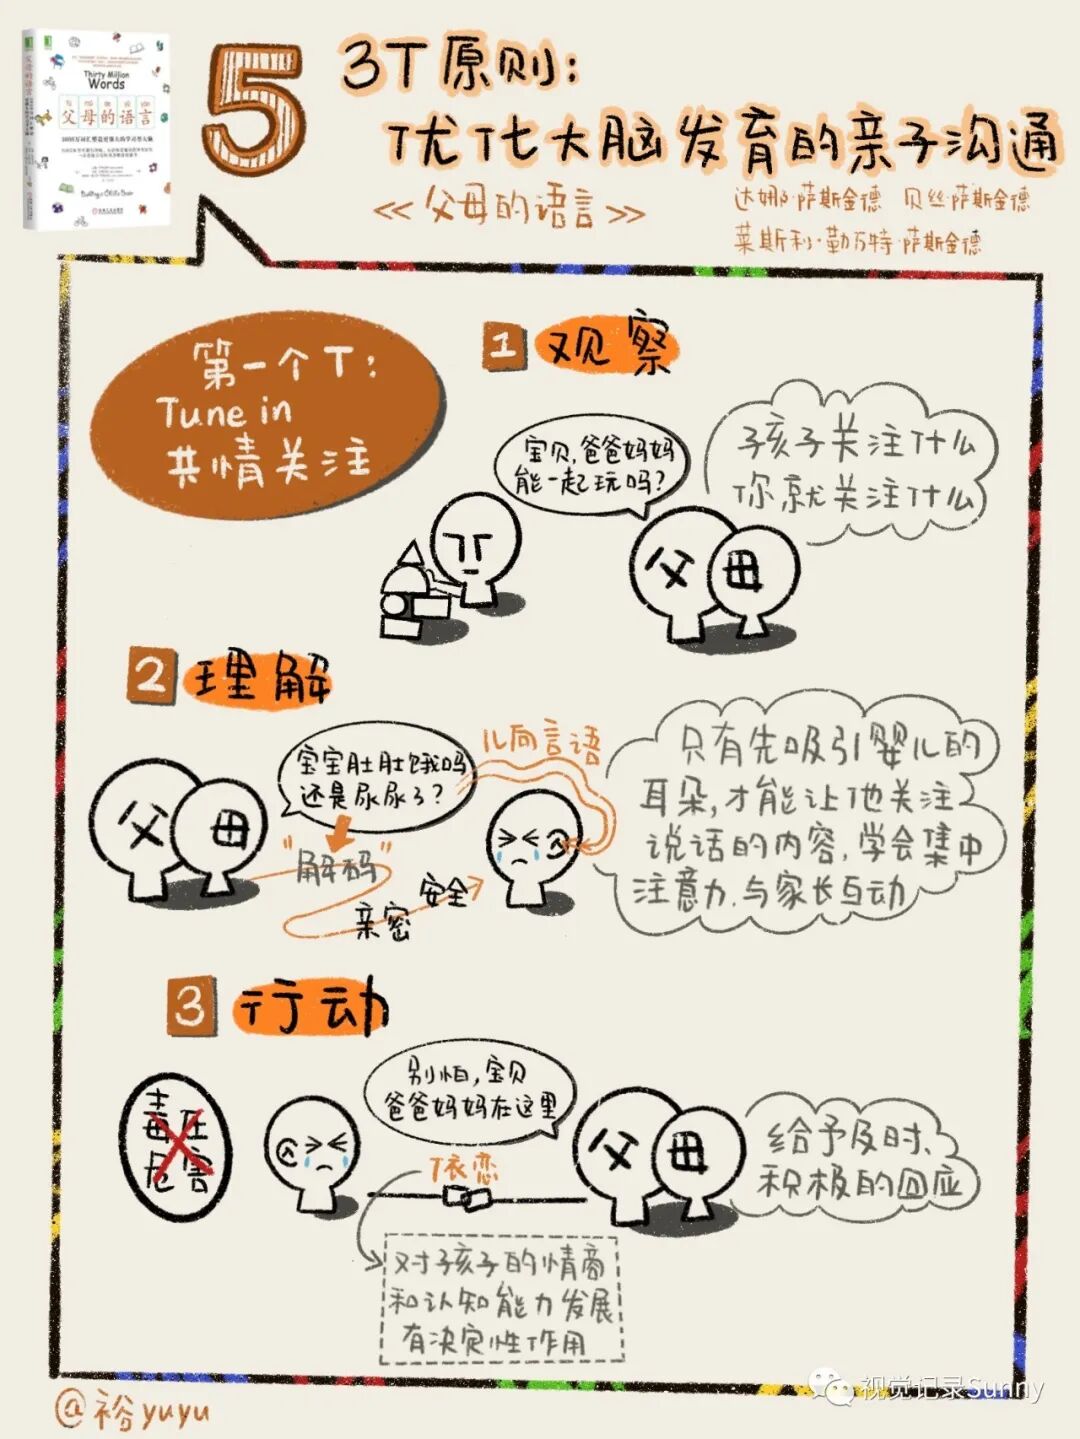 Thirty Million
Words
父母的语言
5
3T原则:
优化大脑发育的亲子沟通
《父母的语言》
达娜·萨斯金德 贝丝·萨斯金德
莱斯利·勒万特-萨斯金德
第一个T:
Tune in
共情关注
1 观察
宝贝,爸爸妈妈
能一起玩吗?
孩子关注什么
你就关注什么
父 母
2 理解
宝宝肚肚饿吗
还是尿尿了?
父 母
"解码"
儿向言语
亲密
安全
只有先吸引婴儿的
耳朵,才能让他关注
说话的内容,学会集中
注意力.与家长互动
3 行动
毒压
危害
别怕,宝贝
爸爸妈妈在这里
父 母
依恋
给予及时、
积极的回应
对孩子的情商
和认知能力发展
有决定性作用
@裕yuyu
视觉记录Sunny